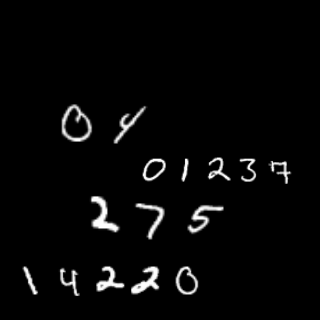 0 4
0 1 2 3 7
2 7 5
1 4 2 2 0